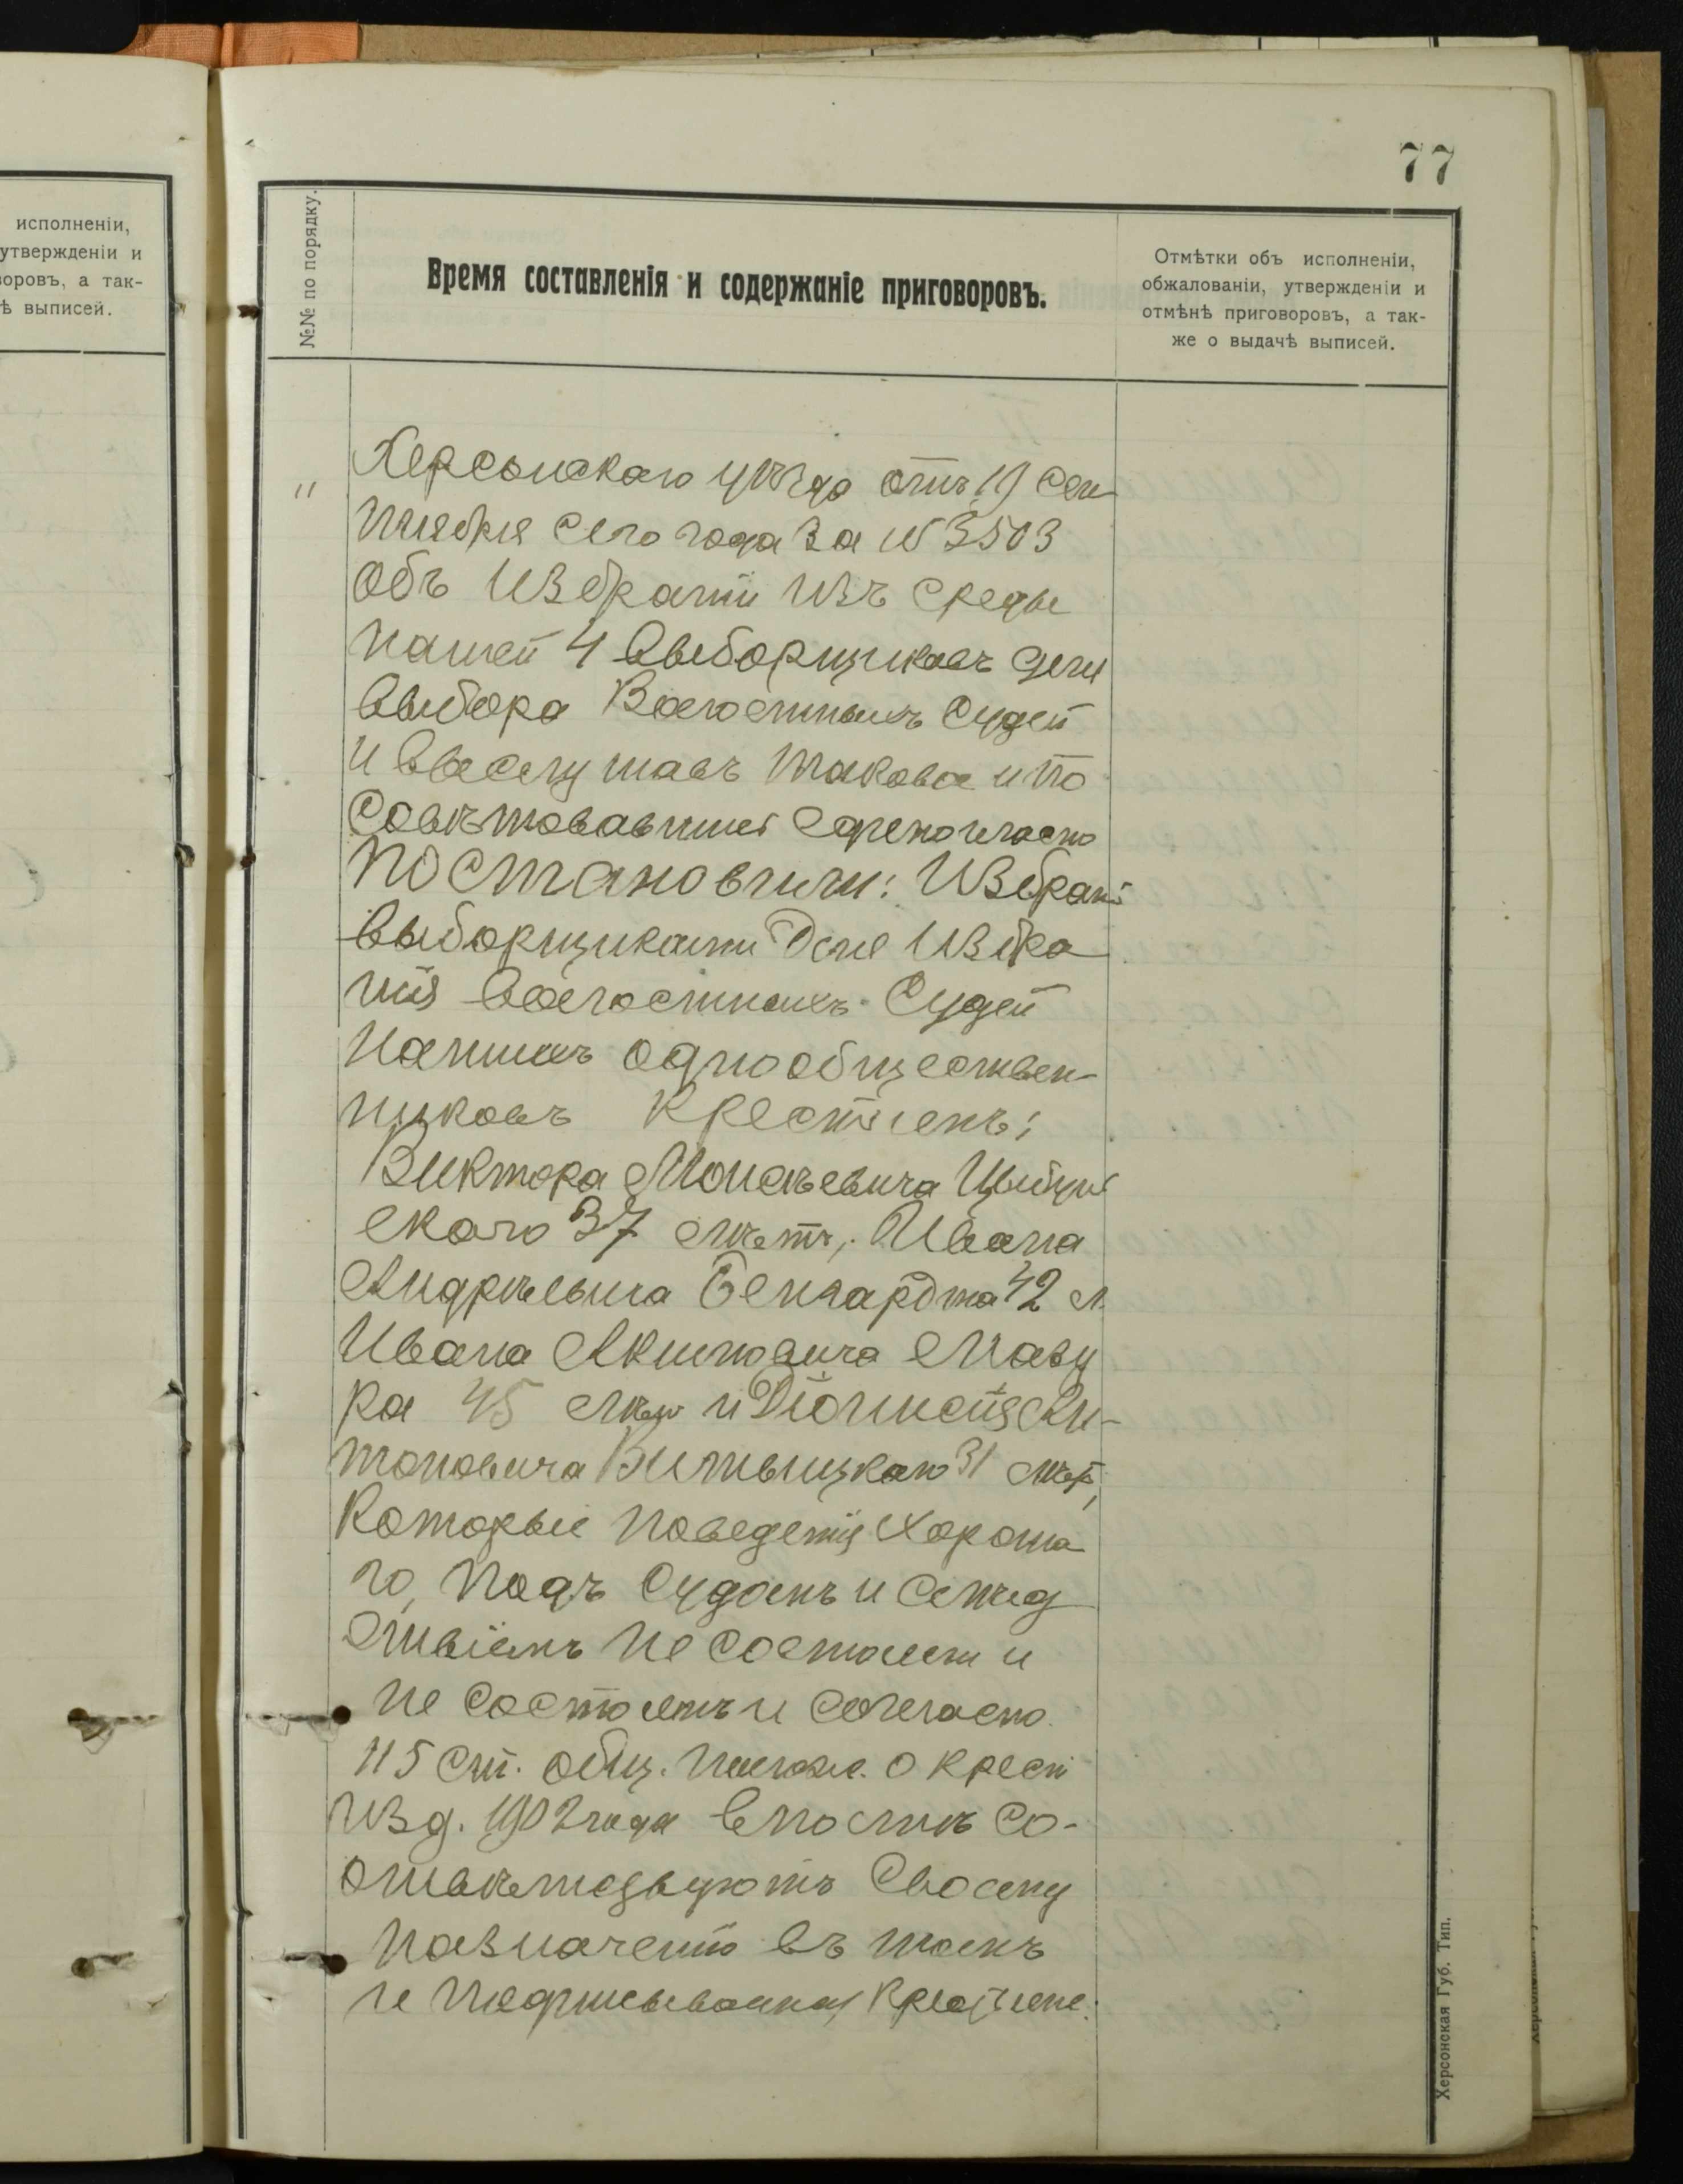 77
исполненіи,
утвержденіи и
воровъ, а так-
ѣ выписей.
№№ по порядку.
Время составленія и содержаніе приговоровъ.
Отмѣтки объ исполненіи,
обжалованіи, утвержденіи и
отмѣнѣ приговоровъ, а так-
же о выдачѣ выписей.
"
Херсонскаго уѣзда отъ 19 Сен
тября сего года За № 3503
Объ Избраніи Изъ Среды
Нашей 4 выборщиковъ для
выбора Волостныхъ Судей
и выслушавъ таковое и По
совѣтовавшись Единогласно
Постановили: Избрать
выборщиками Для Избра
нія Волостныхъ Судей
Нашихъ однообществен-
никовъ Крестьянъ:
Виктора
скаго 37 лѣтъ, Ивана
Андреевича 42 л.
Ивана Акимовича Мазу
ра 45 лѣтъ и Ан-
тоновича 31 лѣтъ,
Которые Поведенія Хороша
го, Подъ Судомъ и Слѣд
ствіемъ Не состояли и
Не состоятъ и Согласно
115 ст. общ. Полож. о Крест
Изд. 1902 года вполнѣ Со-
отвѣтствуютъ Своему
Назначенію въ томъ
и Подписываемся Крестьяне.
Херсонская Губ. Тип.